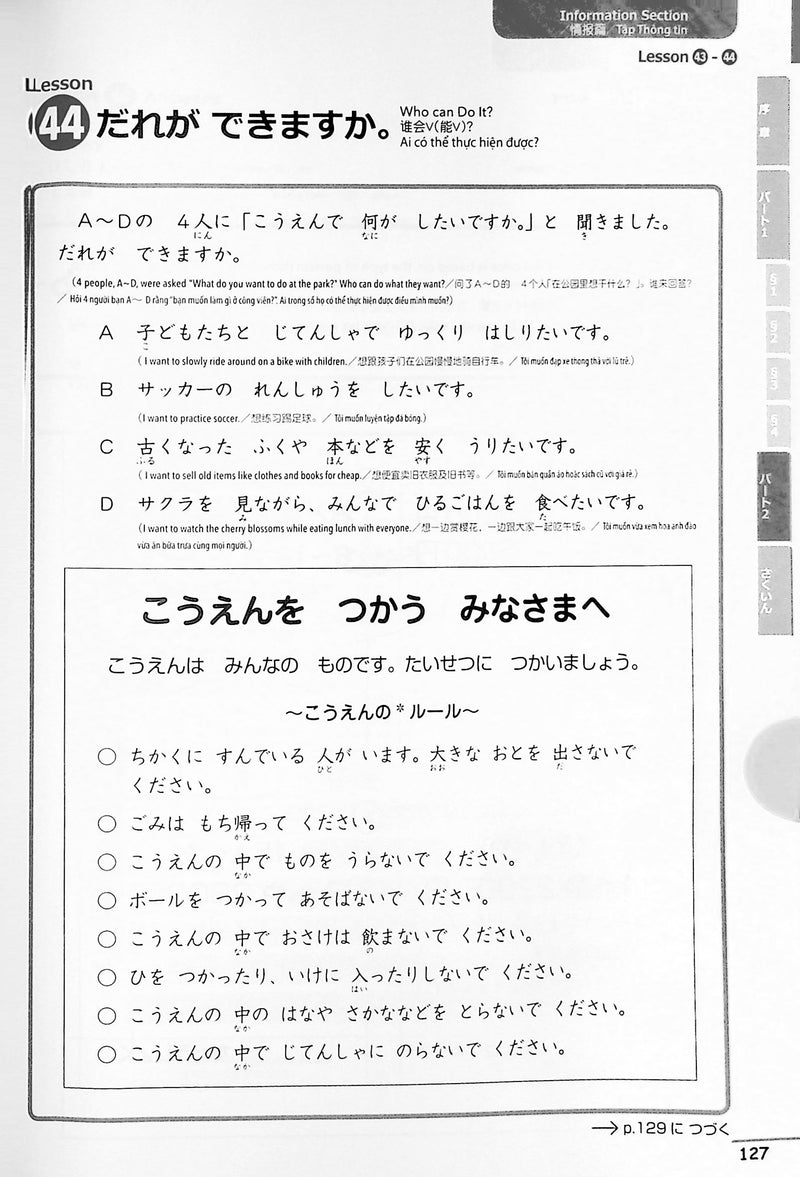 Information Section
情报篇／Tập Thông tin
Lesson 43 - 44
Lesson
44 だれが できますか。
Who can Do It?
谁会V(能V)?
Ai có thể thực hiện được?
序章
パート1
§1
§2
§3
§4
パート2
さくいん
A～Dの 4人に「こうえんで 何が したいですか。」と 聞きました。
にん なに き
だれが できますか。
(4 people, A~D, were asked "What do you want to do at the park?" Who can do what they want?／问了A～D的 4个人「在公园里想干什么？」。谁来回答?
／Hỏi 4 người bạn A～D rằng "bạn muốn làm gì ở công viên?". Ai trong số họ có thể thực hiện được điều mình muốn?)
A 子どもたちと じてんしゃで ゆっくり はしりたいです。
こ
(I want to slowly ride around on a bike with children.／想跟孩子们在公园慢慢地骑自行车。／Tôi muốn đạp xe thong thả với lũ trẻ.)
B サッカーの れんしゅうを したいです。
(I want to practice soccer.／想练习踢足球。／Tôi muốn luyện tập đá bóng.)
C 古くなった ふくや 本などを 安く うりたいです。
ふる ほん やす
(I want to sell old items like clothes and books for cheap.／想便宜卖旧衣服及旧书等。／Tôi muốn bán quần áo hoặc sách cũ với giá rẻ.)
D サクラを 見ながら、みんなで ひるごはんを 食べたいです。
み た
(I want to watch the cherry blossoms while eating lunch with everyone.／想一边赏樱花、一边跟大家一起吃午饭。／Tôi muốn vừa xem hoa anh đào
vừa ăn bữa trưa cùng mọi người.)
こうえんを つかう みなさまへ
こうえんは みんなの ものです。たいせつに つかいましょう。
～こうえんの＊ルール～
○ ちかくに すんでいる 人が います。大きな おとを 出さないで
ひと おお だ
ください。
○ ごみは もち帰って ください。
かえ
○ こうえんの 中で ものを うらないで ください。
なか
○ ボールを つかって あそばないで ください。
○ こうえんの 中で おさけは 飲まないで ください。
なか の
○ ひを つかったり、いけに 入ったりしないで ください。
はい
○ こうえんの 中の はなや さかななどを とらないで ください。
なか
○ こうえんの 中で じてんしゃに のらないで ください。
なか
→p.129に つづく
127